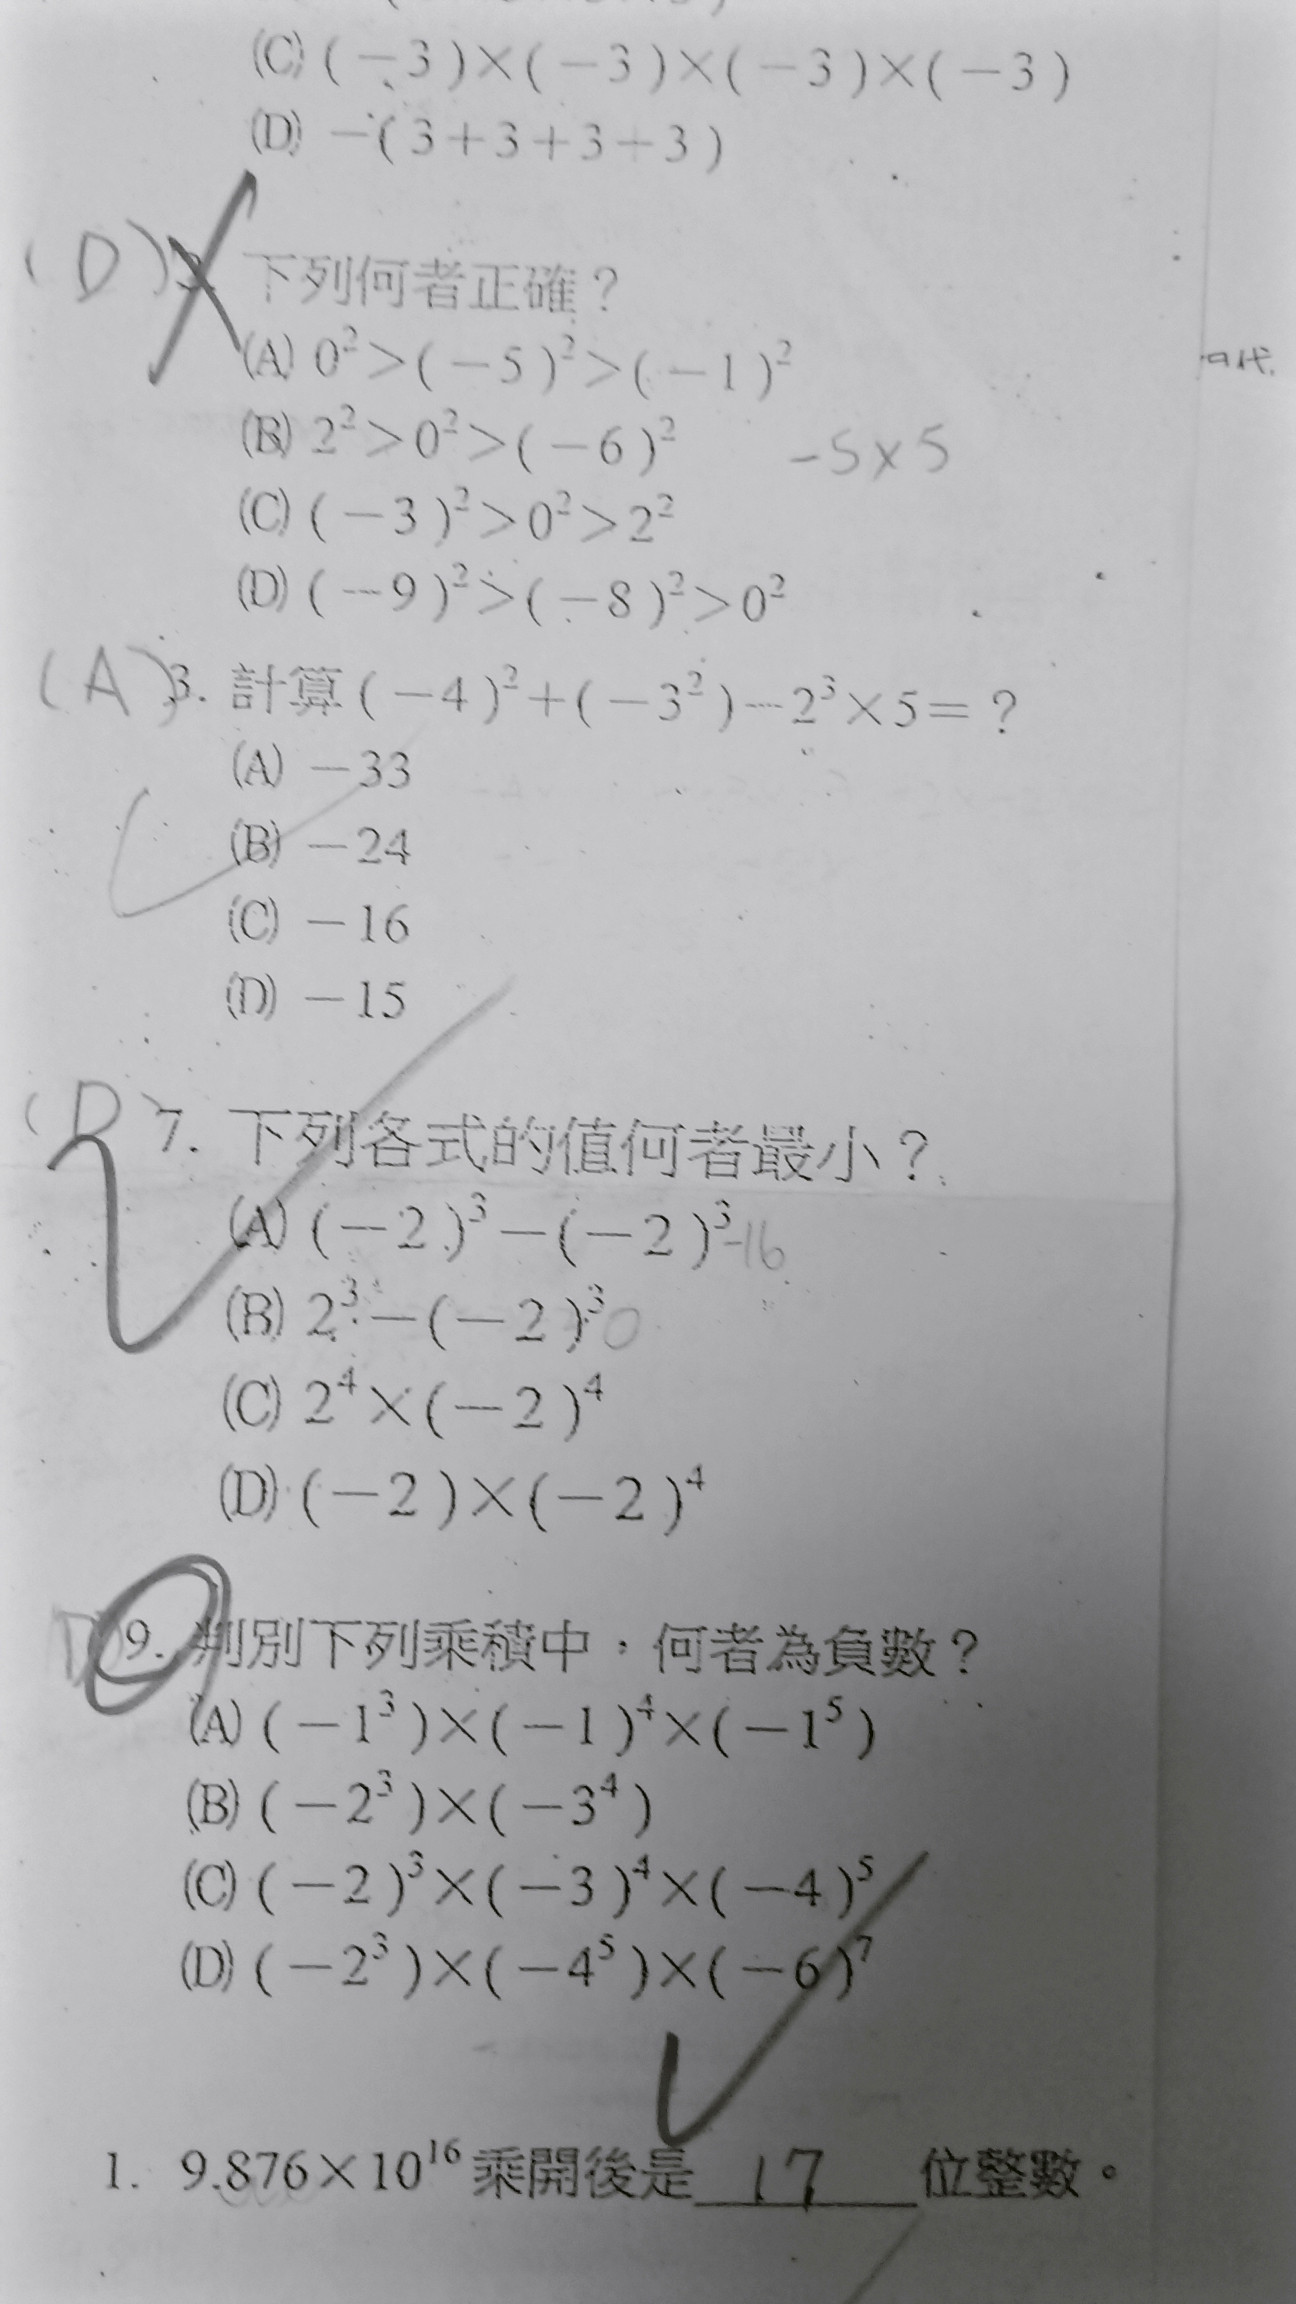 (C) (－3)×(－3)×(－3)×(－3)
(D) －(3＋3＋3＋3)
(D) 下列何者正確？
(A) 0²＞(－5)²＞(－1)²
(B) 2²＞0²＞(－6)²
-5×5
(C) (－3)²＞0²＞2²
(D) (－9)²＞(－8)²＞0²
(A) 3. 計算(－4)²＋(－3²)－2³×5＝？
(A) －33
(B) －24
(C) －16
(D) －15
(D) 7. 下列各式的值何者最小？
(A) (－2)³－(－2)³ -16
(B) 2³－(－2)³ 0
(C) 2⁴×(－2)⁴
(D) (－2)×(－2)⁴
D) 9. 判別下列乘積中，何者為負數？
(A) (－1³)×(－1)⁴×(－1⁵)
(B) (－2³)×(－3⁴)
(C) (－2)³×(－3)⁴×(－4)⁵
(D) (－2³)×(－4⁵)×(－6)⁷
1. 9.876×10¹⁶乘開後是 17 位整數。